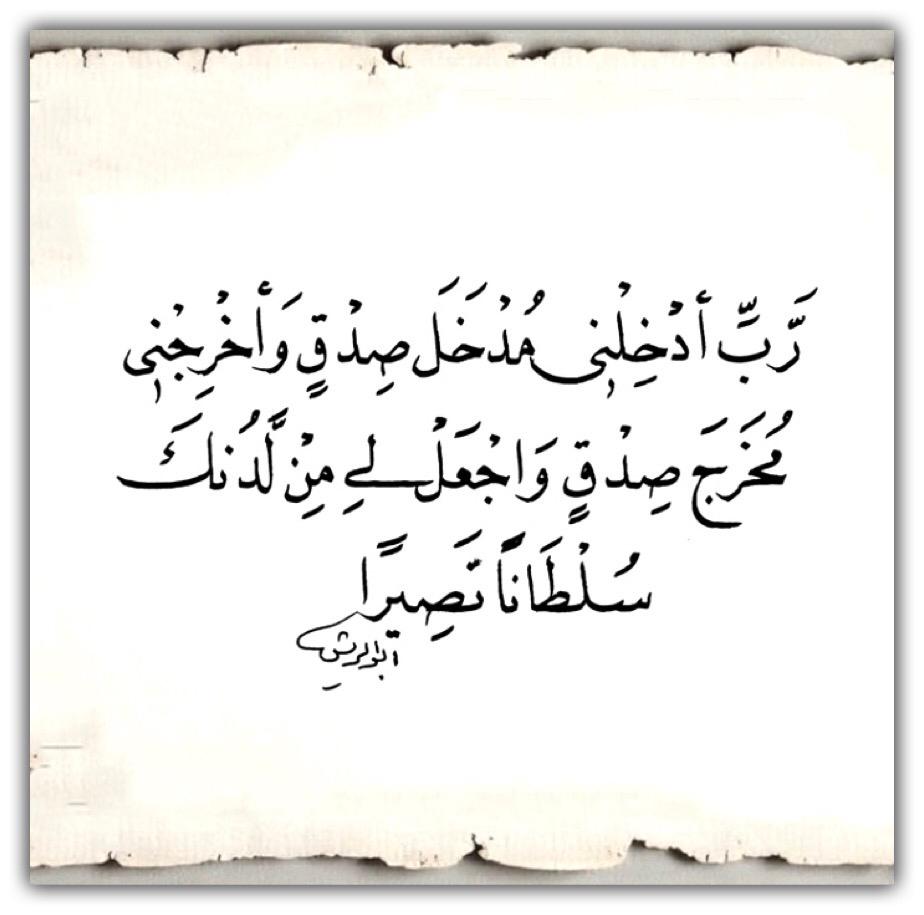 رَّبِّ أَدْخِلْنِي مُدْخَلَ صِدْقٍ وَأَخْرِجْنِي
مُخْرَجَ صِدْقٍ وَاجْعَلْ لِي مِنْ لَّدُنكَ
سُلْطَانًا نَّصِيرًا